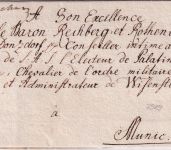 A Son Excellence
le Baron Rechberg et Rothen
Donzdorf, Conseiller intime a
de S. A. S. l'Electeur de Palatin
Chevalier de l'ordre militaire
et Administrateur de
à
Munic.